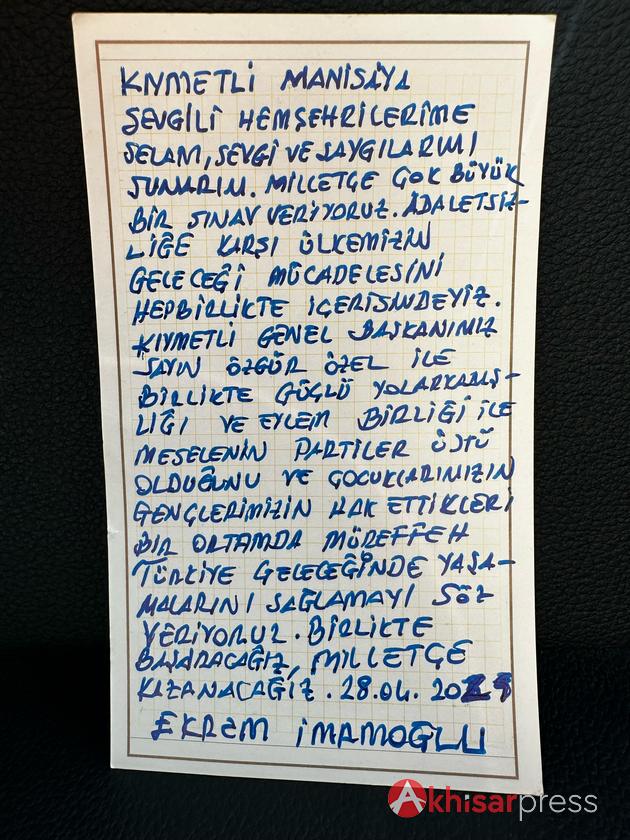 KIYMETLİ MANİSAYA
SEVGİLİ HEMŞEHRİLERİME
SELAM, SEVGİ VE SAYGILARIMI
SUNARIM. MİLLETÇE ÇOK BÜYÜK
BİR SINAV VERİYORUZ. ADALETSİZ-
LİĞE KARŞI ÜLKEMİZİN
GELECEĞİ MÜCADELESİNİ
HEPBİRLİKTE İÇERİSİNDEYİZ.
KIYMETLİ GENEL BAŞKANIMIZ
SAYIN ÖZGÜR ÖZEL İLE
BİRLİKTE GÜÇLÜ YOLARKADAŞ-
LIĞI VE EYLEM BİRLİĞİ İLE
MESELENİN PARTİLER ÜSTÜ
OLDUĞUNU VE ÇOCUKLARIMIZIN
GENÇLERİMİZİN HAK ETTİKLERİ
BİR ORTAMDA MÜREFFEH
TÜRKİYE GELECEĞİNDE YAŞA-
MALARINI SAĞLAMAYI SÖZ
VERİYORUZ. BİRLİKTE
BAŞARACAĞIZ, MİLLETÇE
KAZANACAĞIZ. 28.04. 2025
EKREM İMAMOĞLU
Akhisarpress